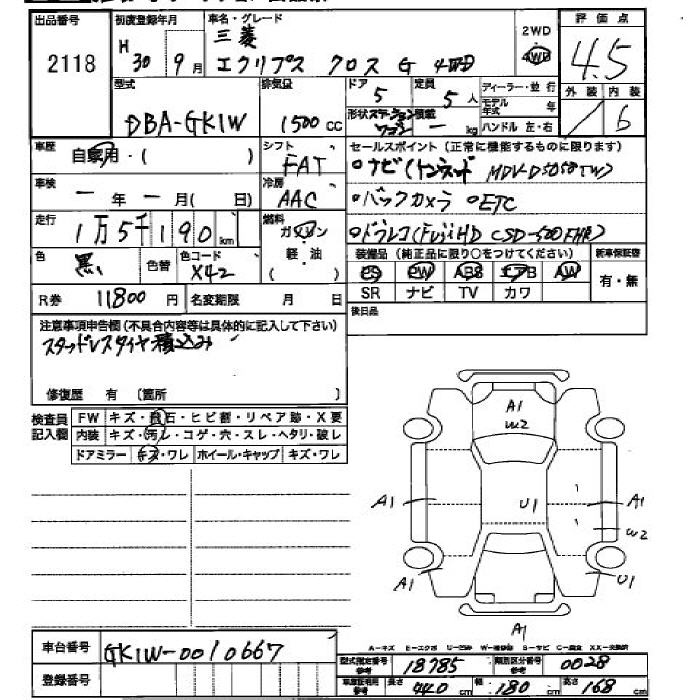 出品番号 初度登録年月 車名・グレード 評価点
2118 H30年9月 三菱 2WD 4.5
エクリプス クロス G 4WD 4WD
型式 排気量 ドア 5 定員 5人 ディーラー・並行 外装 内装
DBA-GK1W 1500cc 形状 ステーションワゴン 積載 ー kg モデル年式 年 / 6
ハンドル 左・右
車歴 自家用・( ) シフト FAT セールスポイント(正常に機能するものに限ります)
車検 ー年ー月( 日) 冷房 AAC ○ナビ(
MDV-D505BTW)
○バックカメラ ○ETC
走行 1万5千190km 燃料 ガソリン・軽・油 ( ) ○ドラレコ(FujiHD CSD-500FHR)
色 黒 色替 色コード X42 装備品(純正品に限り○をつけてください) 新車保証書
PS PW ABS エアB AW 有・無
R券 11800円 名変期限 月 日 SR ナビ TV カワ
注意事項申告欄(不具合内容等は具体的に記入して下さい) 後日品
スタッドレスタイヤ積込み
修復歴 有 〔箇所 〕
検査員記入欄 FW キズ・飛石・ヒビ割・リペア跡・X要
内装 キズ・汚レ・コゲ・穴・スレ・ヘタリ・破レ
ドアミラー キズ・ワレ ホイール・キャップ キズ・ワレ
A1
W2
A1 U1 A1
W2
A1 U1
A1
車台番号 GK1W-0010667
型式指定番号 18785 類別区分番号 0028
登録番号 長さ 440cm 幅 180cm 高さ 168cm